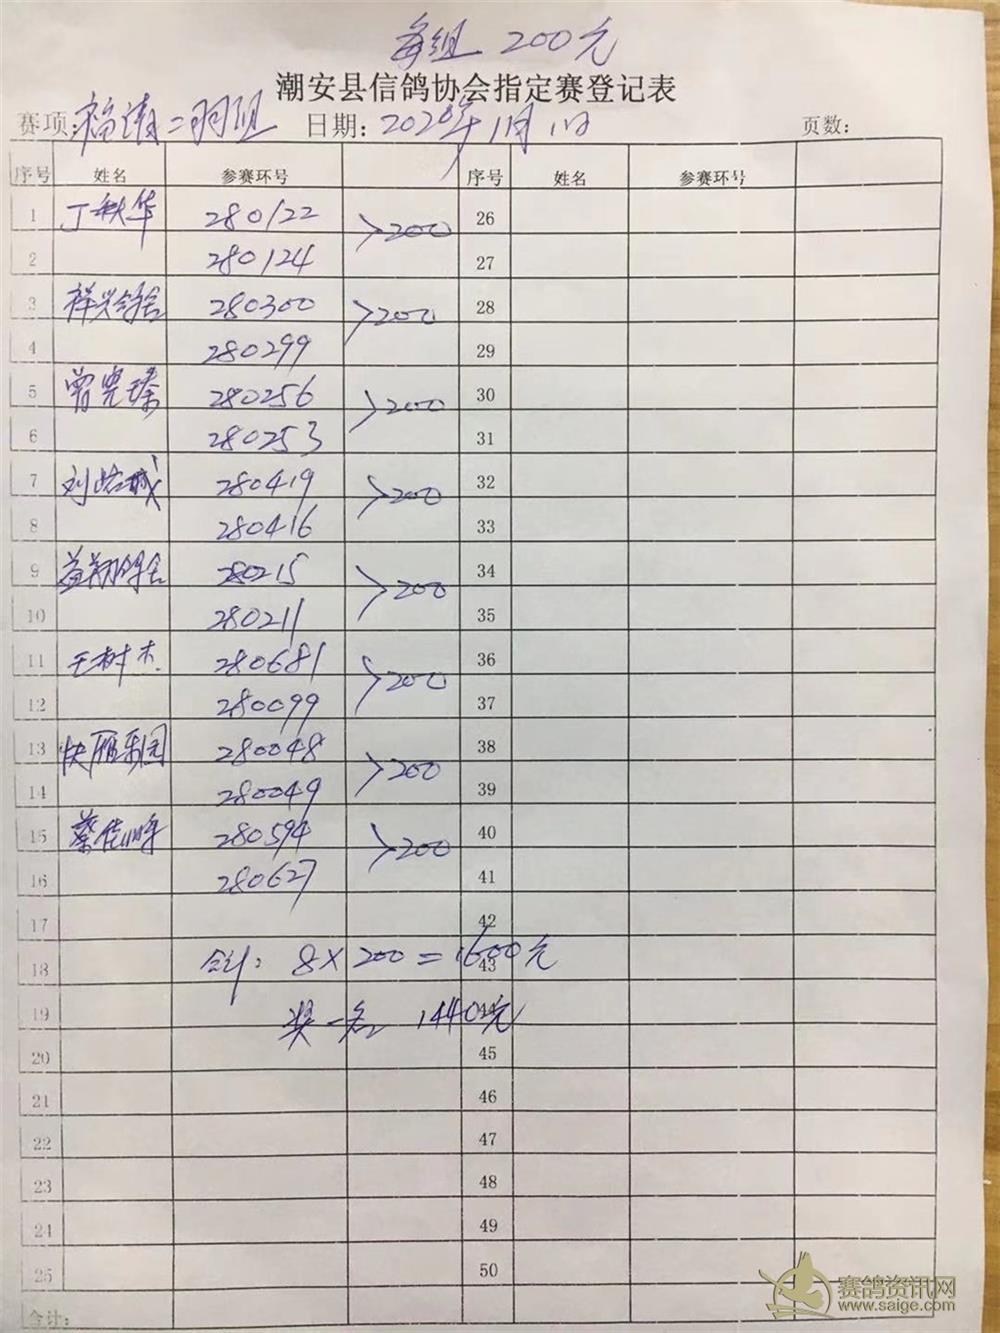 每组 200元
潮安县信鸽协会指定赛登记表
赛项:福清二羽组 日期:2020年11月1日 页数:
序号 姓名 参赛环号 序号 姓名 参赛环号
1 丁秋华 280122 >200 26
2 280124 27
3 祥兴鸽舍 280300 >200 28
4 280299 29
5 曾宪臻 280256 >200 30
6 280253 31
7 刘 城 280419 >200 32
8 280416 33
9 益翔鸽舍 280215 >200 34
10 280211 35
11 王树木 280681 >200 36
12 280099 37
13 快雁乐园 280048 >200 38
14 280049 39
15 蔡佳峰 280594 >200 40
16 280627 41
17 42
18 合计: 8×200=1600元 43
19 奖一名 1440元 44
20 45
21 46
22 47
23 48
24 49
25 50
合计:
赛鸽资讯网
www.saige.com